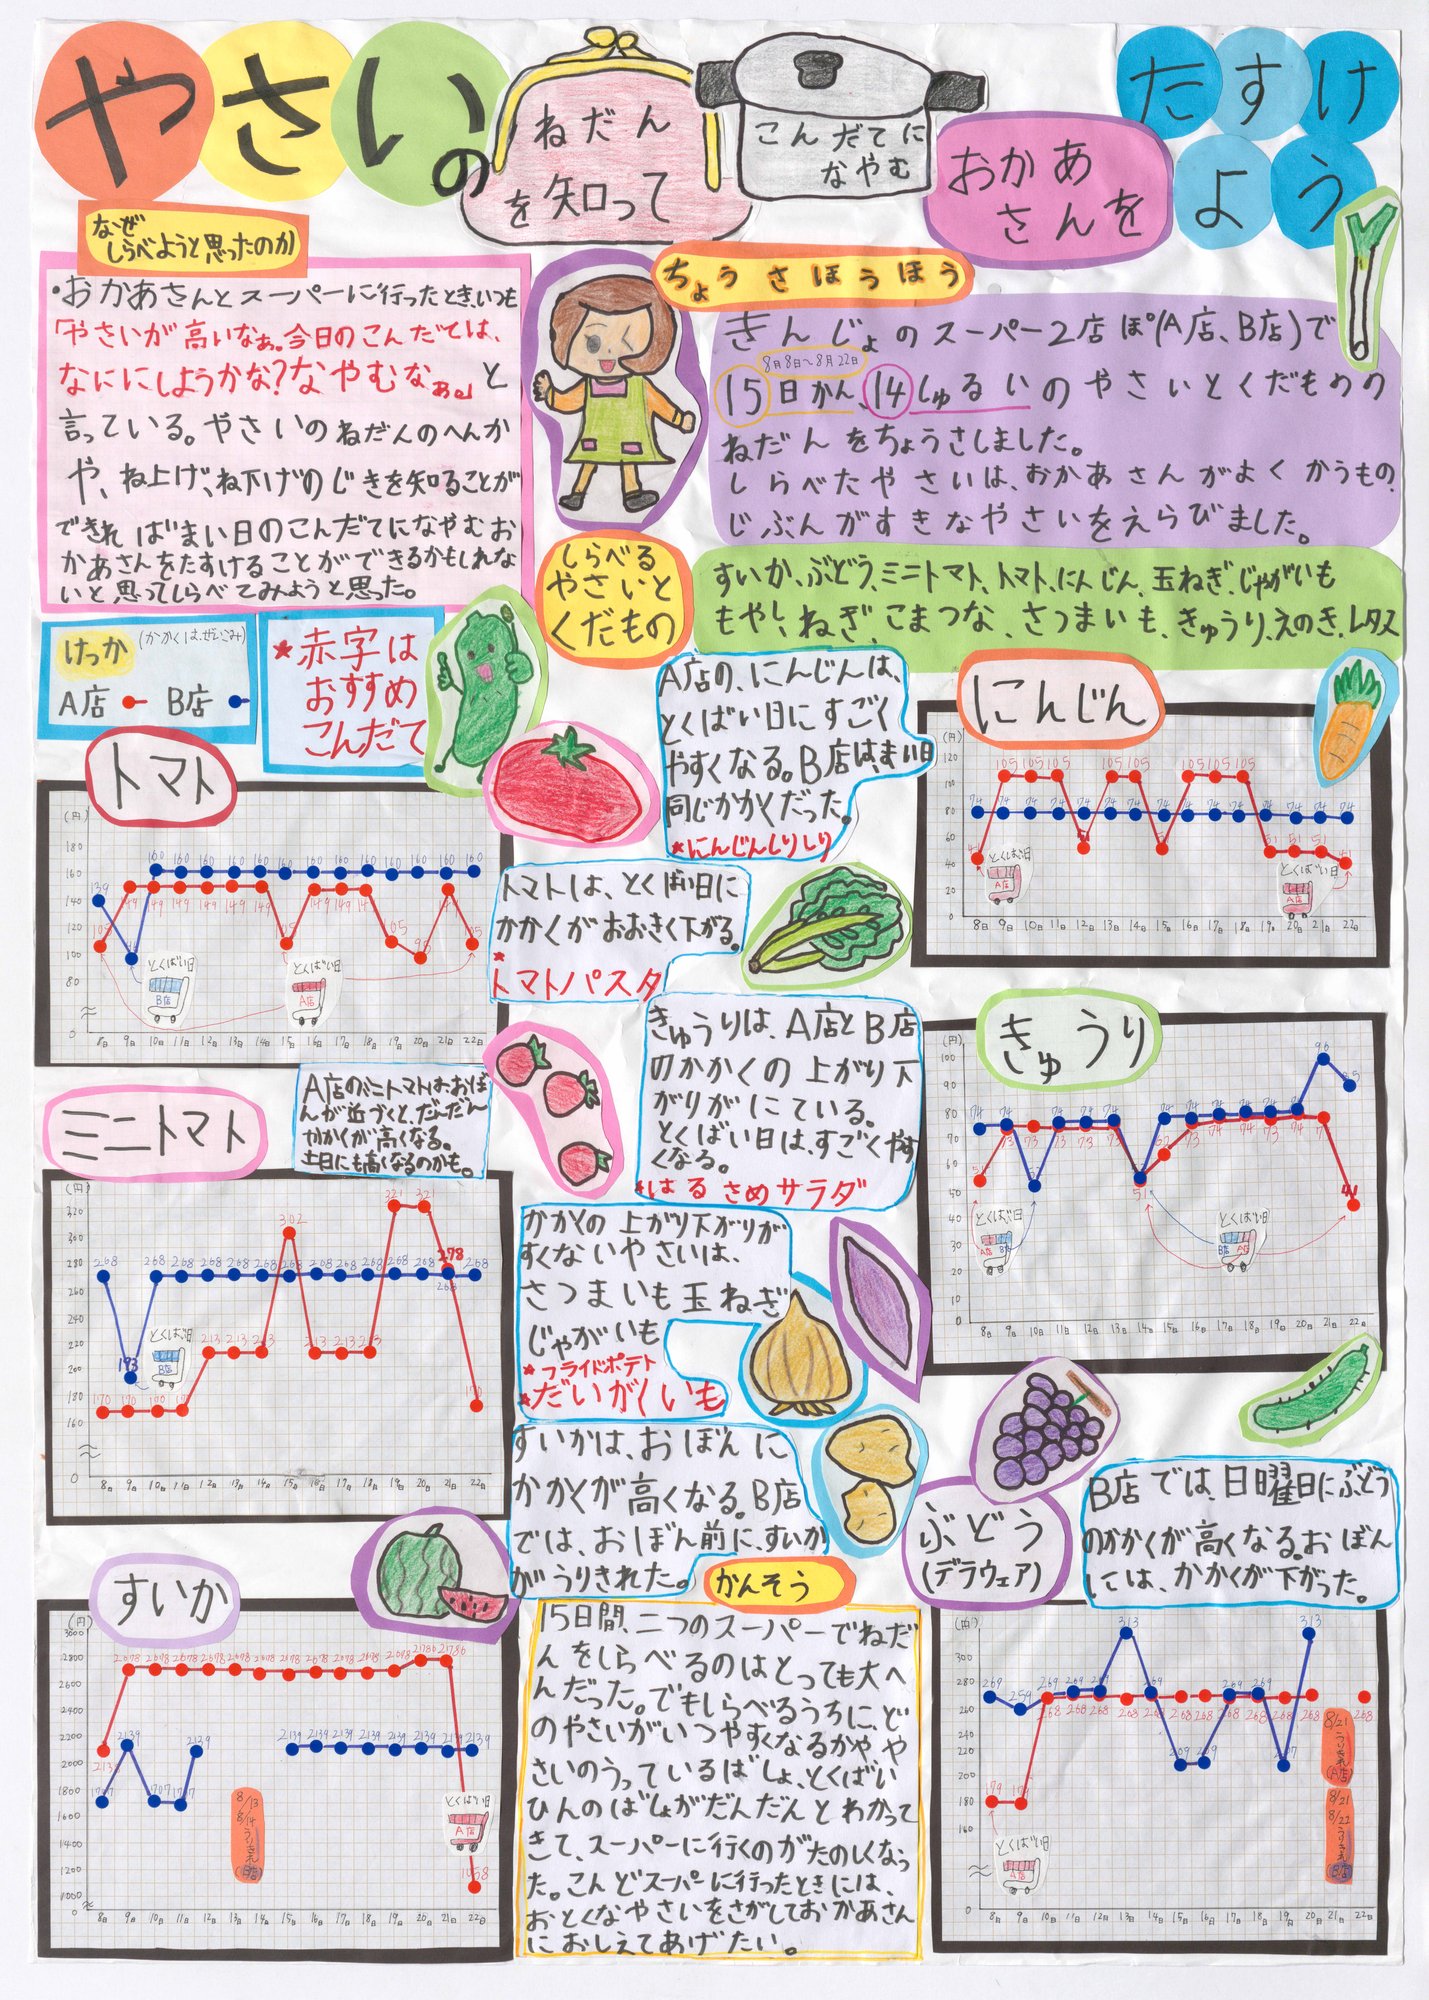 やさいの
ねだん
を知って
こんだてに
なやむ
おかあ
さんを
たすけ
よう
なぜ
しらべようと思ったのか
・おかあさんとスーパーに行ったとき、いつも
「やさいが高いなぁ。今日のこんだては、
なににしようかな？なやむなぁ。」と
言っている。やさいのねだんのへんか
や、ね上げ、ね下げのじきを知ることが
できればまい日のこんだてになやむお
かあさんをたすけることができるかもしれな
いと思ってしらべてみようと思った。
ちょうさほうほう
きんじょのスーパー2店ぽ(A店、B店)で
8月8日〜8月22日
15日かん、14しゅるいのやさいとくだものの
ねだんをちょうさしました。
しらべたやさいは、おかあさんがよくかうもの、
じぶんがすきなやさいをえらびました。
しらべる
やさいと
くだもの
すいか、ぶどう、ミニトマト、トマト、にんじん、玉ねぎ、じゃがいも
もやし、ねぎ、こまつな、さつまいも、きゅうり、えのき、レタス
けっか
(かかくは、ぜいこみ)
A店 B店
★赤字は
おすすめ
こんだて
トマト
(円)
180
160
140
120
100
80
0
139 160 160 160 160 160 160 160 160 160 160 160 160 160
105 149 149 149 149 149 149 105 149 149 149 105 98 105
とくばい日
B店
とくばい日
A店
8日 9日 10日 11日 12日 13日 14日 15日 16日 17日 18日 19日 20日 21日 22日
A店の、にんじんは、
とくばい日にすごく
やすくなる。B店は、まい日
同じかかくだった。
★にんじんしりしり
にんじん
(円)
120
80
60
40
20
0
105 105 105 105 105 105 105 105
74 74 74 74 74 74 74 74 74 74 74 74 74 74 74
51 51 51
とくばい日
A店
とくばい日
A店
8日 9日 10日 11日 12日 13日 14日 15日 16日 17日 18日 19日 20日 21日 22日
トマトは、とくばい日に
かかくがおおきく下がる。
★
トマトパスタ
きゅうりは、A店とB店
のかかくの上がり下
がりがにている。
とくばい日は、すごくやす
くなる。
★はるさめサラダ
きゅうり
(円)
100
90
80
70
60
50
40
30
20
10
0
74 74 74 74 74 74 74 74 74 74 96
73 73 73 73 73 51 62 73
とくばい日
A店 B店
とくばい日
B店 A店
8日 9日 10日 11日 12日 13日 14日 15日 16日 17日 18日 19日 20日 21日 22日
ミニトマト
A店のミニトマトは、おぼ
んが近づくと、だんだん
かかくが高くなる。
土日にも高くなるのかも。
(円)
320
300
280
260
240
200
180
160
0
268 268 268 268 268 268 268 268 268 268 268 268 268 268
193
170 170 170 170 213 213 213 302 213 213 213 321 321 278 170
とくばい日
B店
8日 9日 10日 11日 12日 13日 14日 15日 16日 17日 18日 19日 20日 21日 22日
かかくの上がり下がりが
すくないやさいは、
さつまいも玉ねぎ
じゃがいも
★フライドポテト
★だいがくいも
すいかは、おぼんに
かかくが高くなる。B店
では、おぼん前に、すいか
がうりきれた。
すいか
(円)
3000
2800
2600
2400
2200
2000
1800
1600
1400
1200
1000
2678 2678 2678 2678 2678 2678 2678 2678 2678 2678 2678 2786 2786
2139 2139 2139 2139 2139 2139 2139 2139 2139 2139
1707 1707
8/13
8/14
うりきれ
(B店)
とくばい日
A店
1058
8日 9日 10日 11日 12日 13日 14日 15日 16日 17日 18日 19日 20日 21日 22日
かんそう
15日間、二つのスーパーでねだ
んをしらべるのはとっても大へ
んだった。でもしらべるうちに、ど
のやさいがいつやすくなるかや、や
さいのうっているばしょ、とくばい
ひんのばしょがだんだんとわかって
きて、スーパーに行くのがたのしくなっ
た。こんどスーパーに行ったときには、
おとくなやさいをさがしておかあさん
におしえてあげたい。
ぶどう
(デラウェア)
B店では、日曜日にぶどう
のかかくが高くなる。おぼん
には、かかくが下がった。
(円)
300
280
260
240
220
200
180
160
0
269 259 269 269 269 313 269 209 209 269 269 207 313
179 179 268 268 268 268 268 268 268 268 268 268 268 268
8/21
うりきれ
(A店)
8/21
8/22
うりきれ
(B店)
とくばい日
A店
8日 9日 10日 11日 12日 13日 14日 15日 16日 17日 18日 19日 20日 21日 22日